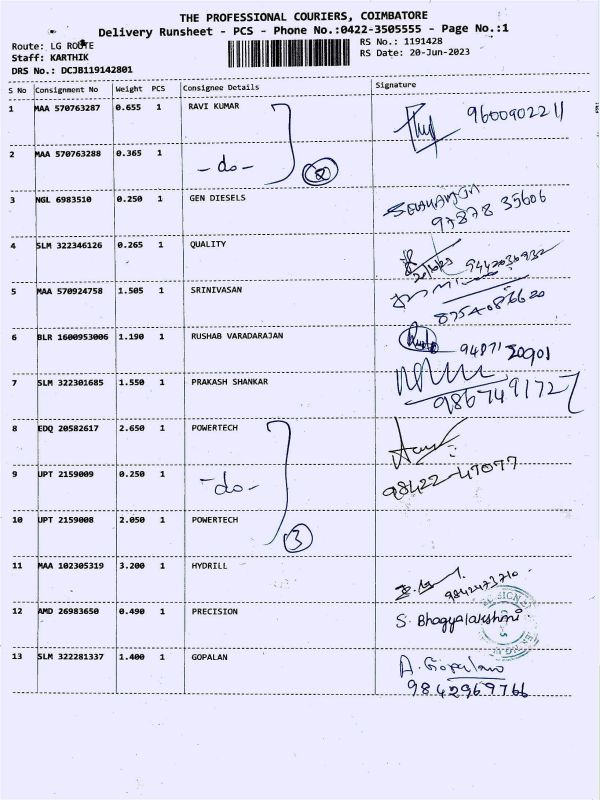 THE PROFESSIONAL COURIERS, COIMBATORE
Delivery Runsheet - PCS - Phone No.:0422-3505555 - Page No.:1
Route: LG ROUTE
RS No.: 1191428
Staff: KARTHIK
RS Date: 20-Jun-2023
DRS No.: DCJB119142801
S No Consignment No Weight PCS Consignee Details Signature
1 MAA 570763287 0.655 1 RAVI KUMAR 9600902211
2 MAA 570763288 0.365 1 -do- 2
3 NGL 6983510 0.250 1 GEN DIESELS
97878 35606
4 SLM 322346126 0.265 1 QUALITY
20/6/23 9442036932
5 MAA 570924758 1.505 1 SRINIVASAN
8754086620
6 BLR 1600953006 1.190 1 RUSHAB VARADARAJAN
94871 20901
7 SLM 322301685 1.550 1 PRAKASH SHANKAR
9867491727
8 EDQ 20582617 2.650 1 POWERTECH
9 UPT 2159009 0.250 1 -do- 98422-47077
10 UPT 2159008 2.050 1 POWERTECH 3
11 MAA 102305319 3.200 1 HYDRILL 9842473710
12 AMD 26983650 0.490 1 PRECISION S. Bhagyalakshmi
13 SLM 322281337 1.400 1 GOPALAN A. Gopalan
9842969766